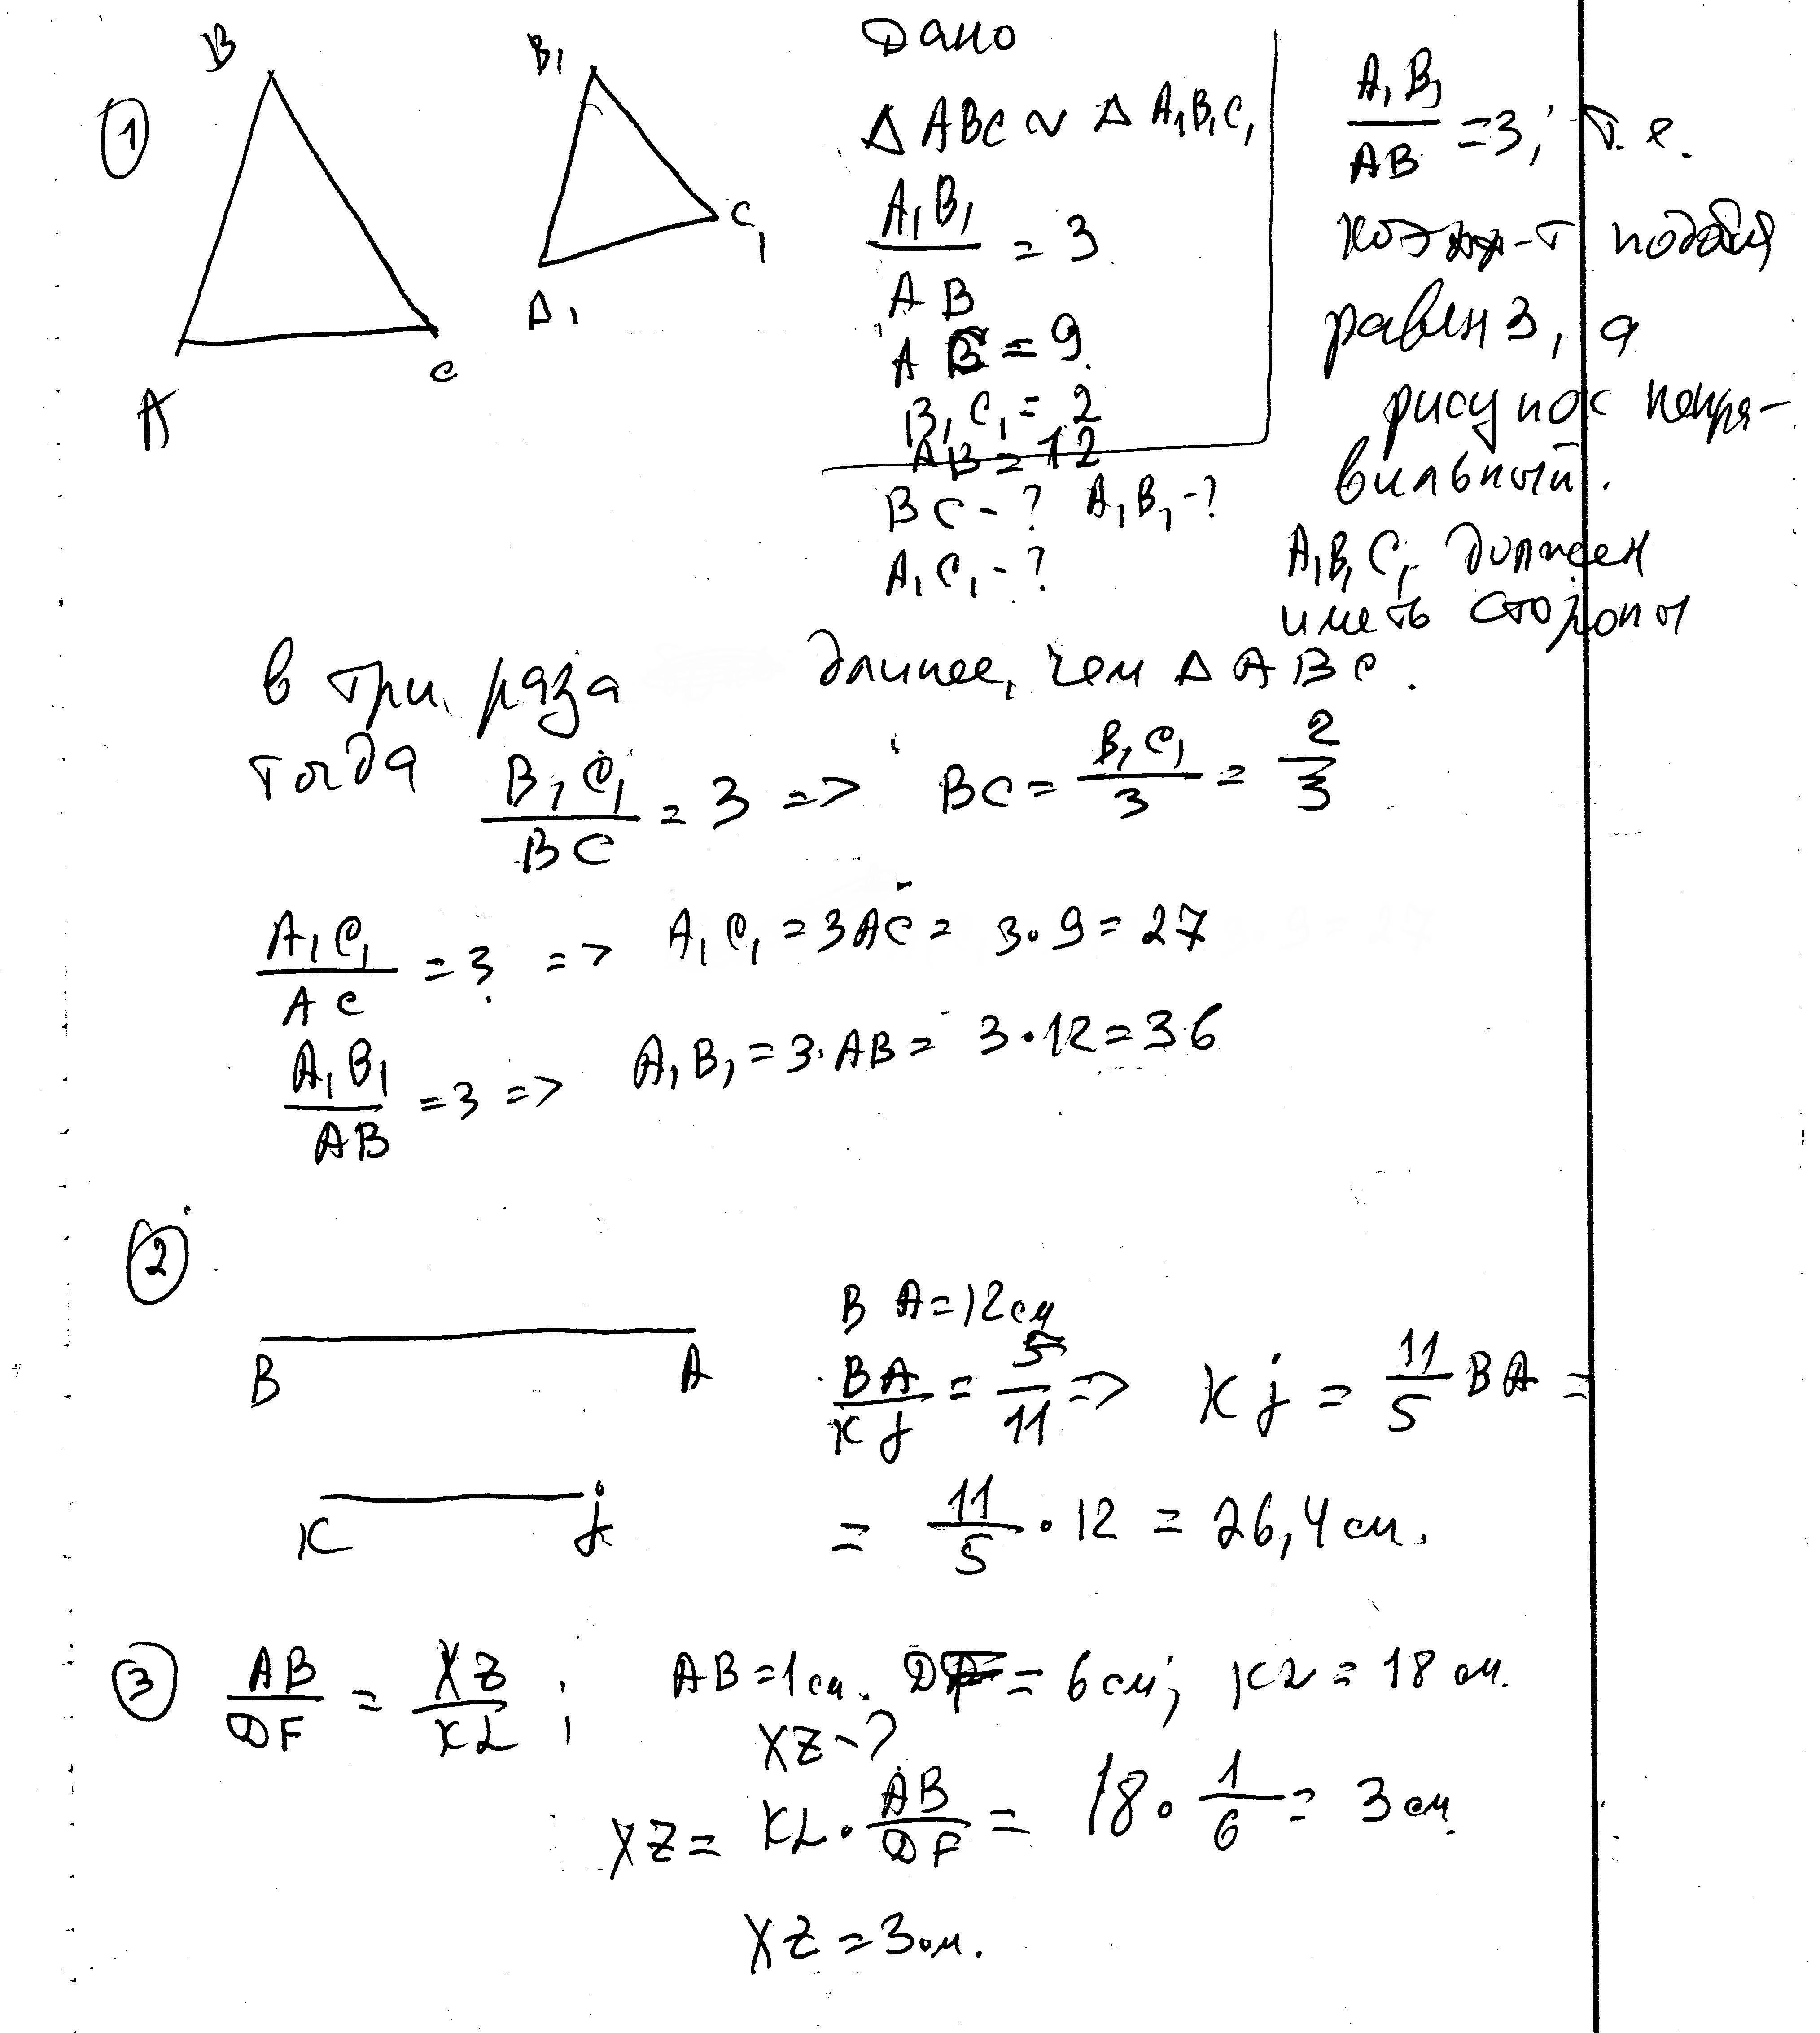 1
B
A
C
B₁
A₁
C₁
Дано
Δ ABC ~ Δ A₁B₁C₁
A₁B₁/AB = 3
AC = 9
B₁C₁ = 2
AB = 12
BC - ? A₁B₁ - ?
A₁C₁ - ?
A₁B₁/AB = 3; т. е.
коэф-т подобия
равен 3, а
рисунок непра-
вильный.
A₁B₁C₁ должен
иметь стороны
в три раза длинее, чем Δ ABC.
тогда B₁C₁/BC = 3 => BC = B₁C₁/3 = 2/3
A₁C₁/AC = 3 => A₁C₁ = 3AC = 3·9 = 27
A₁B₁/AB = 3 => A₁B₁ = 3·AB = 3·12 = 36
2
B A
K j
BA = 12 см
BA/Kj = 5/11 => Kj = 11/5 BA =
= 11/5 · 12 = 26,4 см.
3 AB/DF = XZ/KL; AB = 1 см. DF = 6 см; KL = 18 см.
XZ - ?
XZ = KL · AB/DF = 18 · 1/6 = 3 см.
XZ = 3 см.